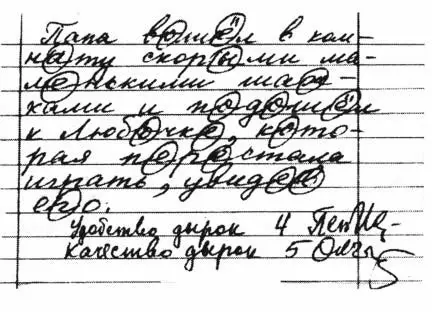 Папа вошёл в ком-
нату скорыми ма-
ленькими шаж-
ками и подошёл
к Любочке, кото-
рая перестала
играть, увидев
его.
Удобство дырок 4
Качество дырок 5